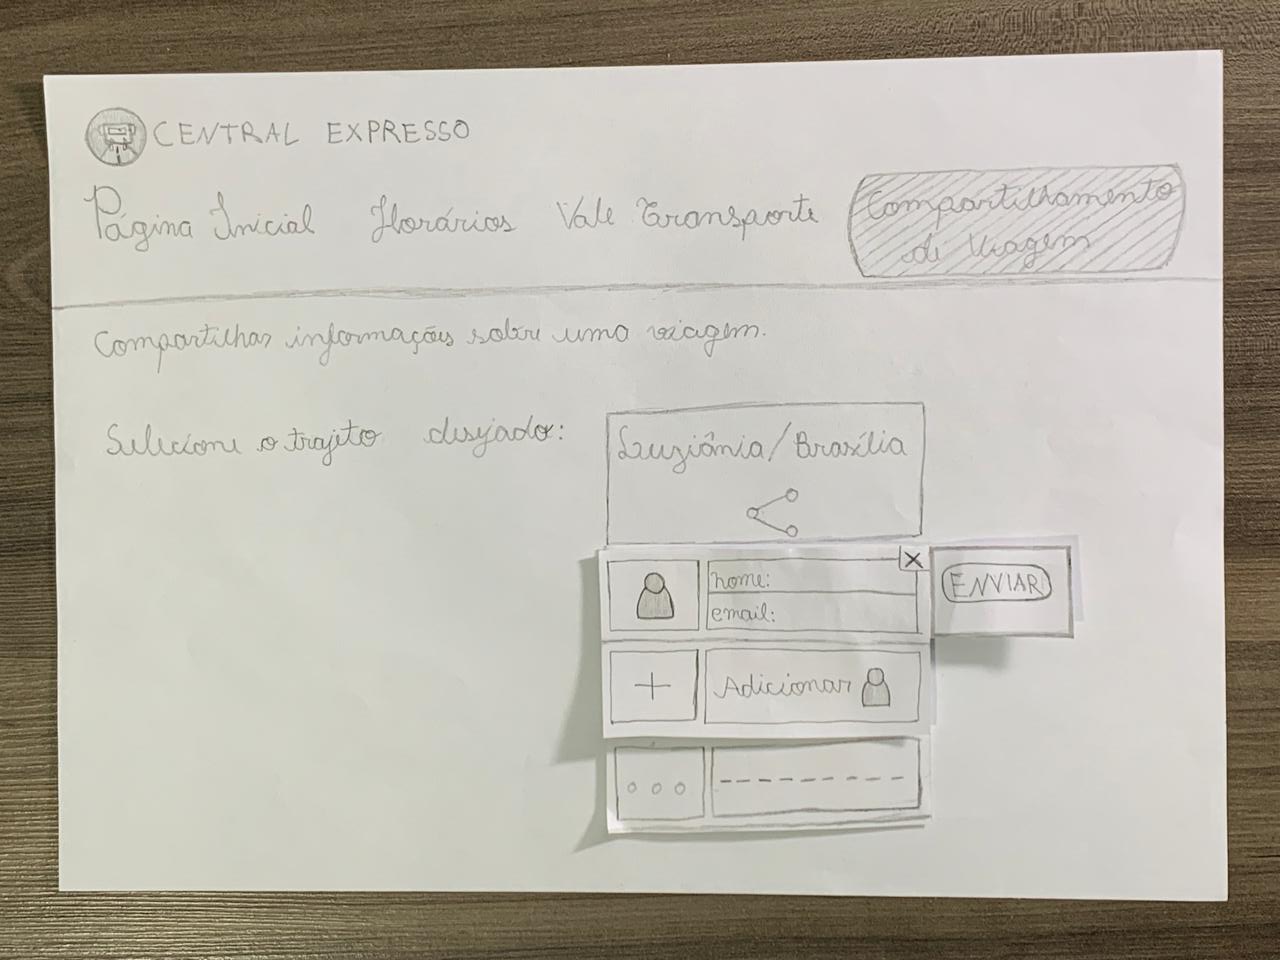 CENTRAL EXPRESSO
Página Inicial Horários Vale Transporte Compartilhamento
de Viagem
Compartilhar informações sobre uma viagem.
Selecione o trajeto desejado:
Luziânia/Brasília
nome:
email:
X
ENVIAR
+ Adicionar